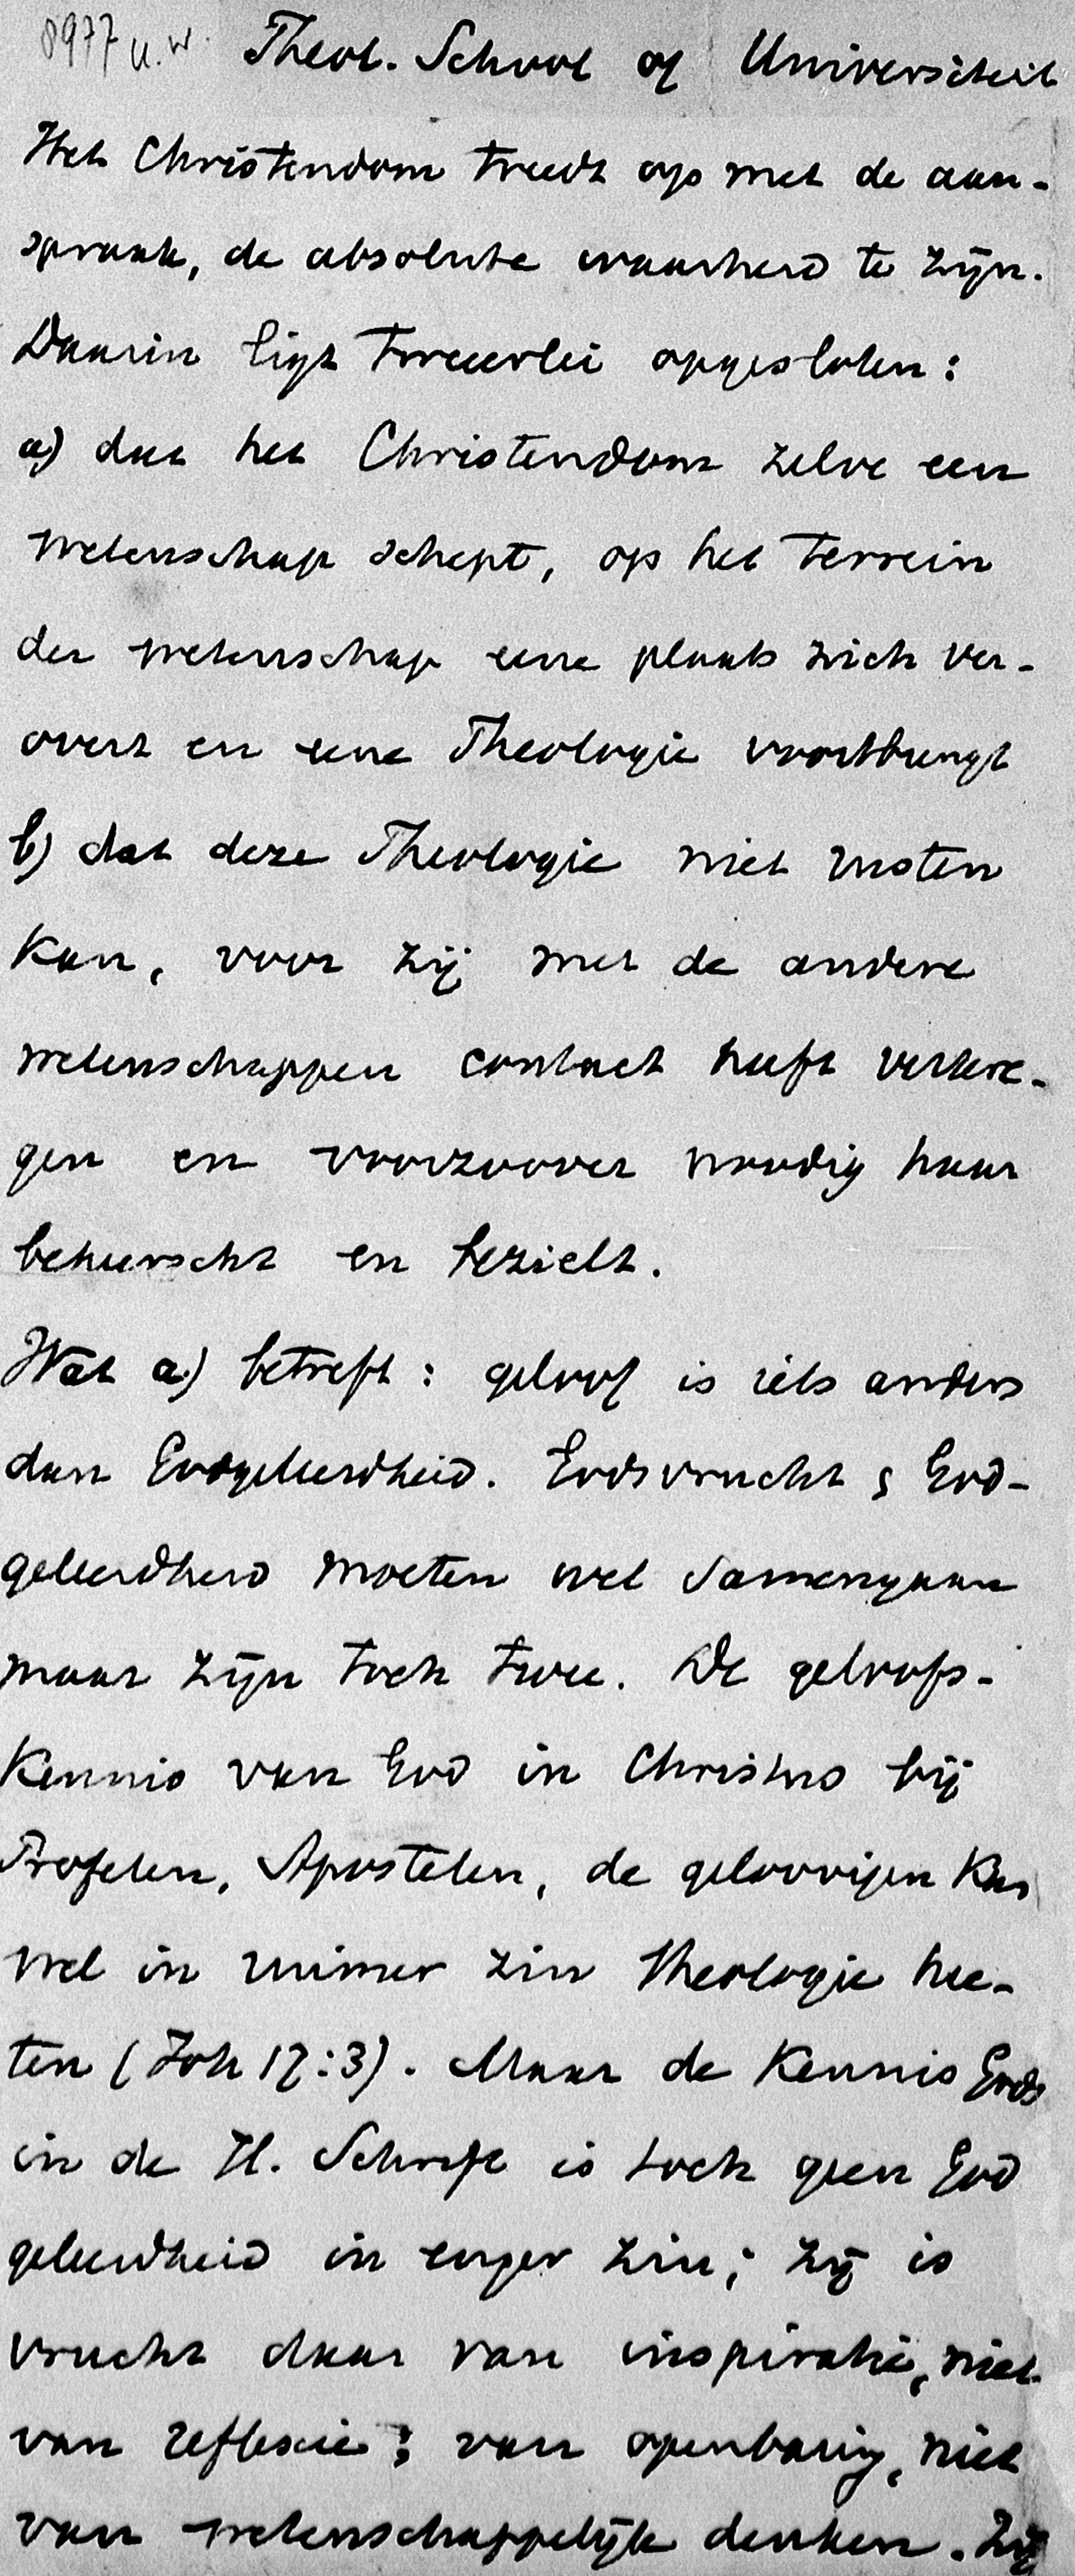 8977 u.w. Theol. School of Universiteit
Het Christendom treedt op met de aan-
spraak, de absolute waarheid te zijn.
Daarin ligt tweeerlei opgesloten:
a) dat het Christendom zelve een
wetenschap schept, op het terrein
der wetenschap eene plaats zich ver-
overt en eene Theologie voortbrengt
b) dat deze Theologie niet rusten
kan, voor zij met de andere
wetenschappen contact heeft verkre-
gen en voorzoover noodig haar
beheerscht en bezielt.
Wat a) betreft: geloof is iets anders
dan Godgeleerdheid. Godsvrucht & God-
geleerdheid moeten wel samengaan
maar zijn toch twee. De geloofs-
kennis van God in Christus bij
Profeten, Apostelen, de geloovigen kan
wel in ruimer zin Theologie hee-
ten (Joh 17:3). Maar de kennis Gods
in de H. Schrift is toch geen God
geleerdheid in enger zin; zij is
vrucht daar van inspiratie, niet
van reflexie; van openbaring, niet
van wetenschappelijk denken. Zij